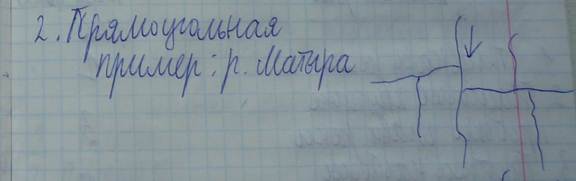 2. Прямоугольная
пример: р. Матыра